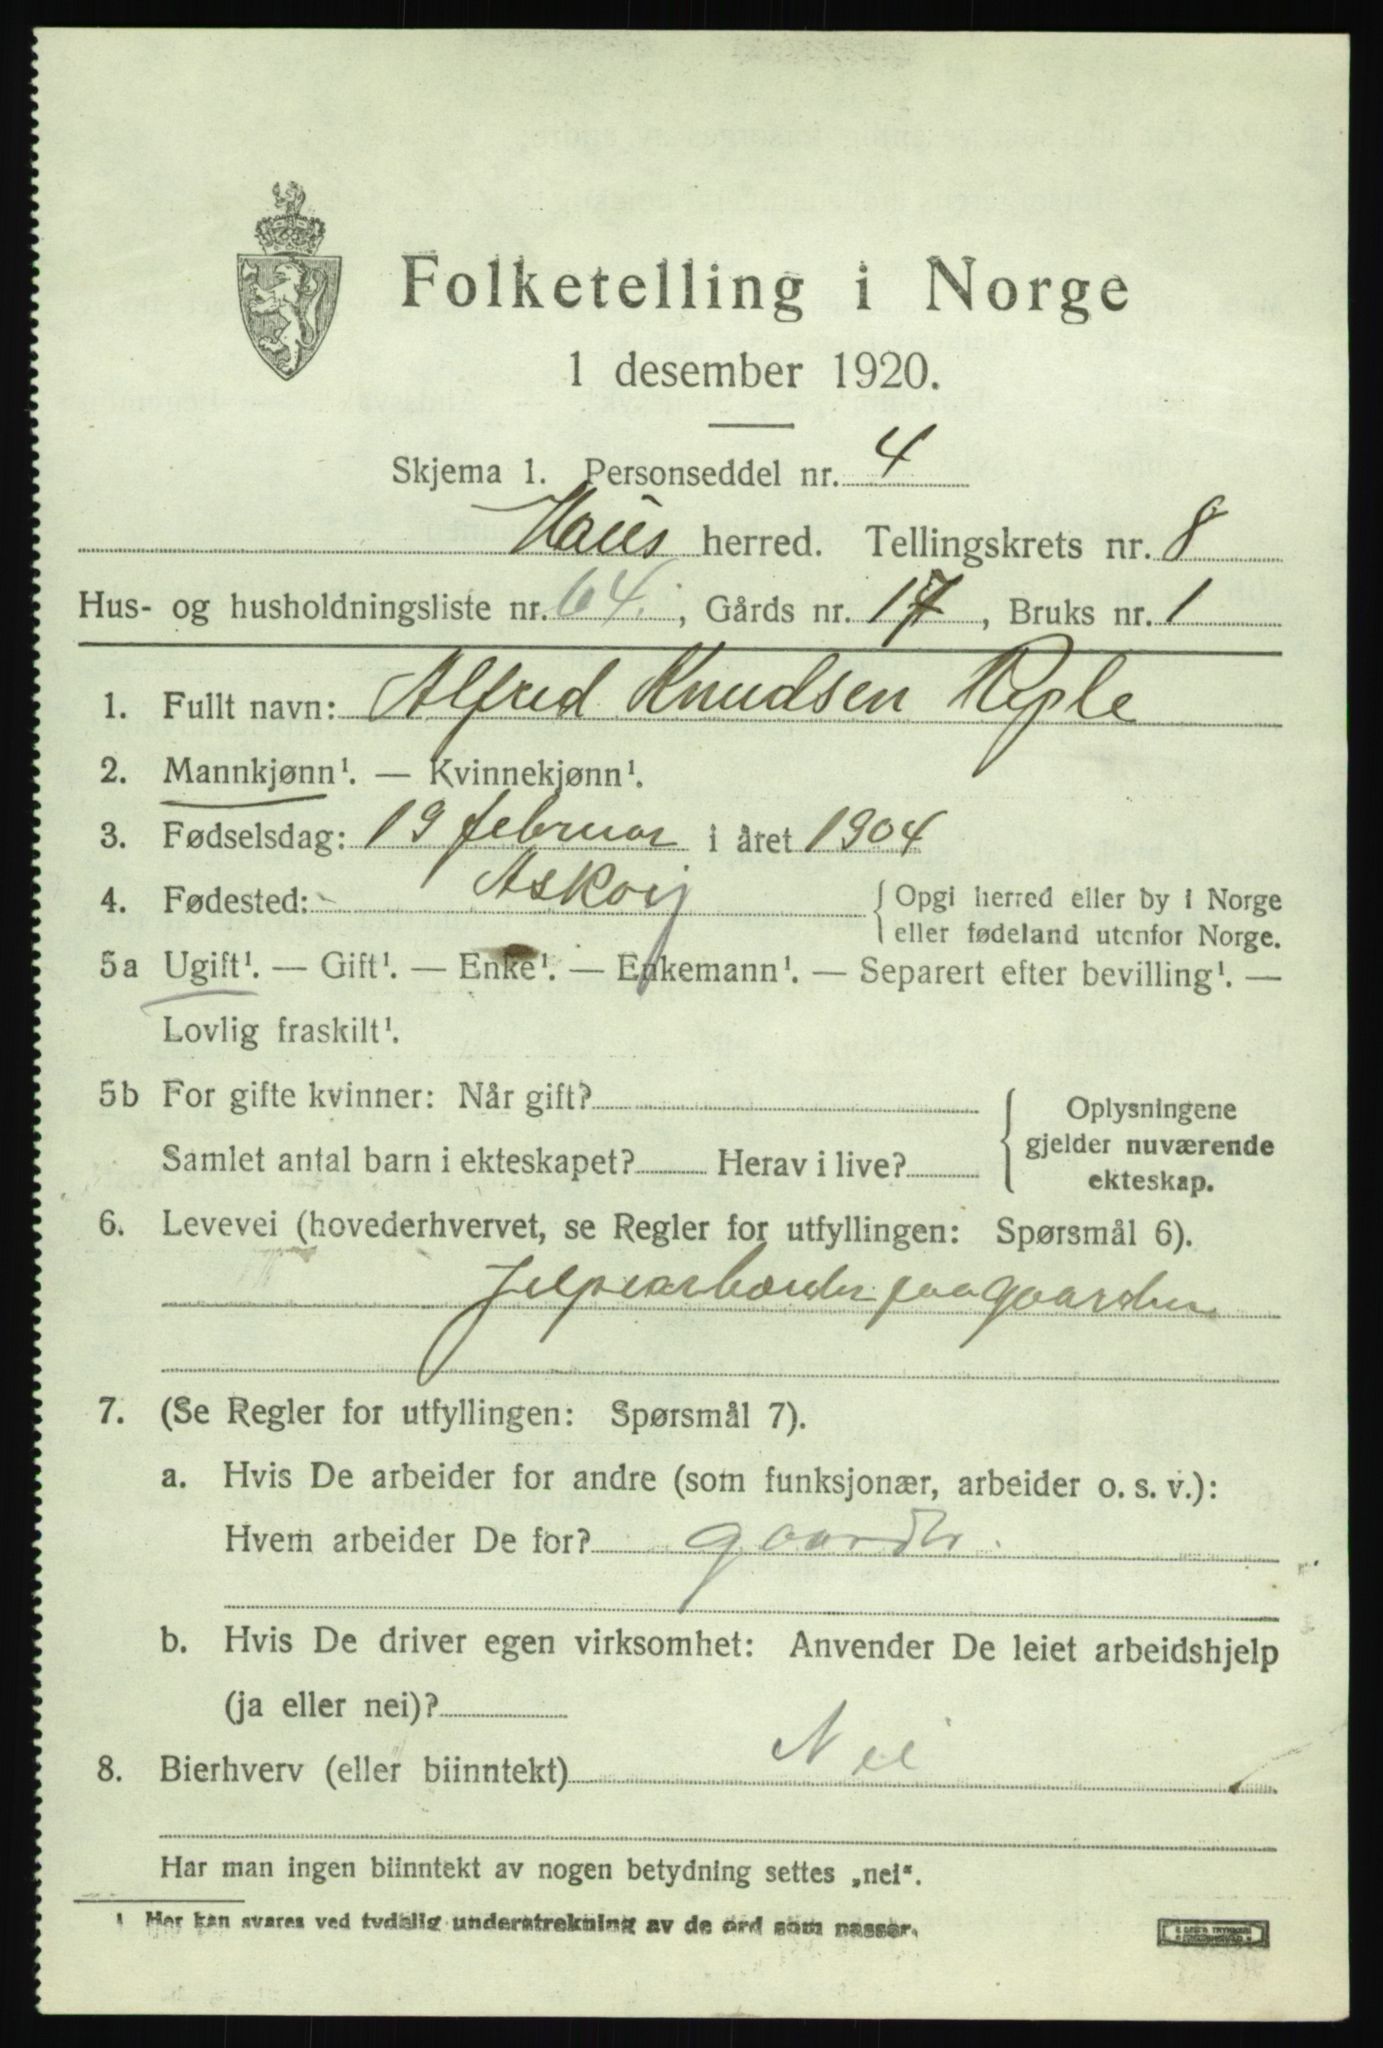 Folketelling i Norge
1 desember 1920.
Skjema 1. Personseddel nr. 4
Haus herred. Tellingskrets nr. 8
Hus- og husholdningsliste nr. 64, Gårds nr. 17, Bruks nr. 1
1. Fullt navn: Alfred Knudsen Reple
2. Mannkjønn¹. — Kvinnekjønn¹.
3. Fødselsdag: 19 februar i året 1904
4. Fødested: Askøy { Opgi herred eller by i Norge
eller fødeland utenfor Norge.
5a Ugift¹. — Gift¹. — Enke¹. — Enkemann¹. — Separert efter bevilling¹. —
Lovlig fraskilt¹.
5b For gifte kvinner: Når gift? { Oplysningene
gjelder nuværende
ekteskap.
Samlet antal barn i ekteskapet? Herav i live?
6. Levevei (hovederhvervet, se Regler for utfyllingen: Spørsmål 6).
Jelpearbeider paa gaarden
7. (Se Regler for utfyllingen: Spørsmål 7).
a. Hvis De arbeider for andre (som funksjonær, arbeider o. s. v.):
Hvem arbeider De for?
b. Hvis De driver egen virksomhet: Anvender De leiet arbeidshjelp
(ja eller nei)?
8. Bierhverv (eller biinntekt) Nei
Har man ingen biinntekt av nogen betydning settes „nei“.
¹ Her kan svares ved tydelig understrekning av de ord som passer.